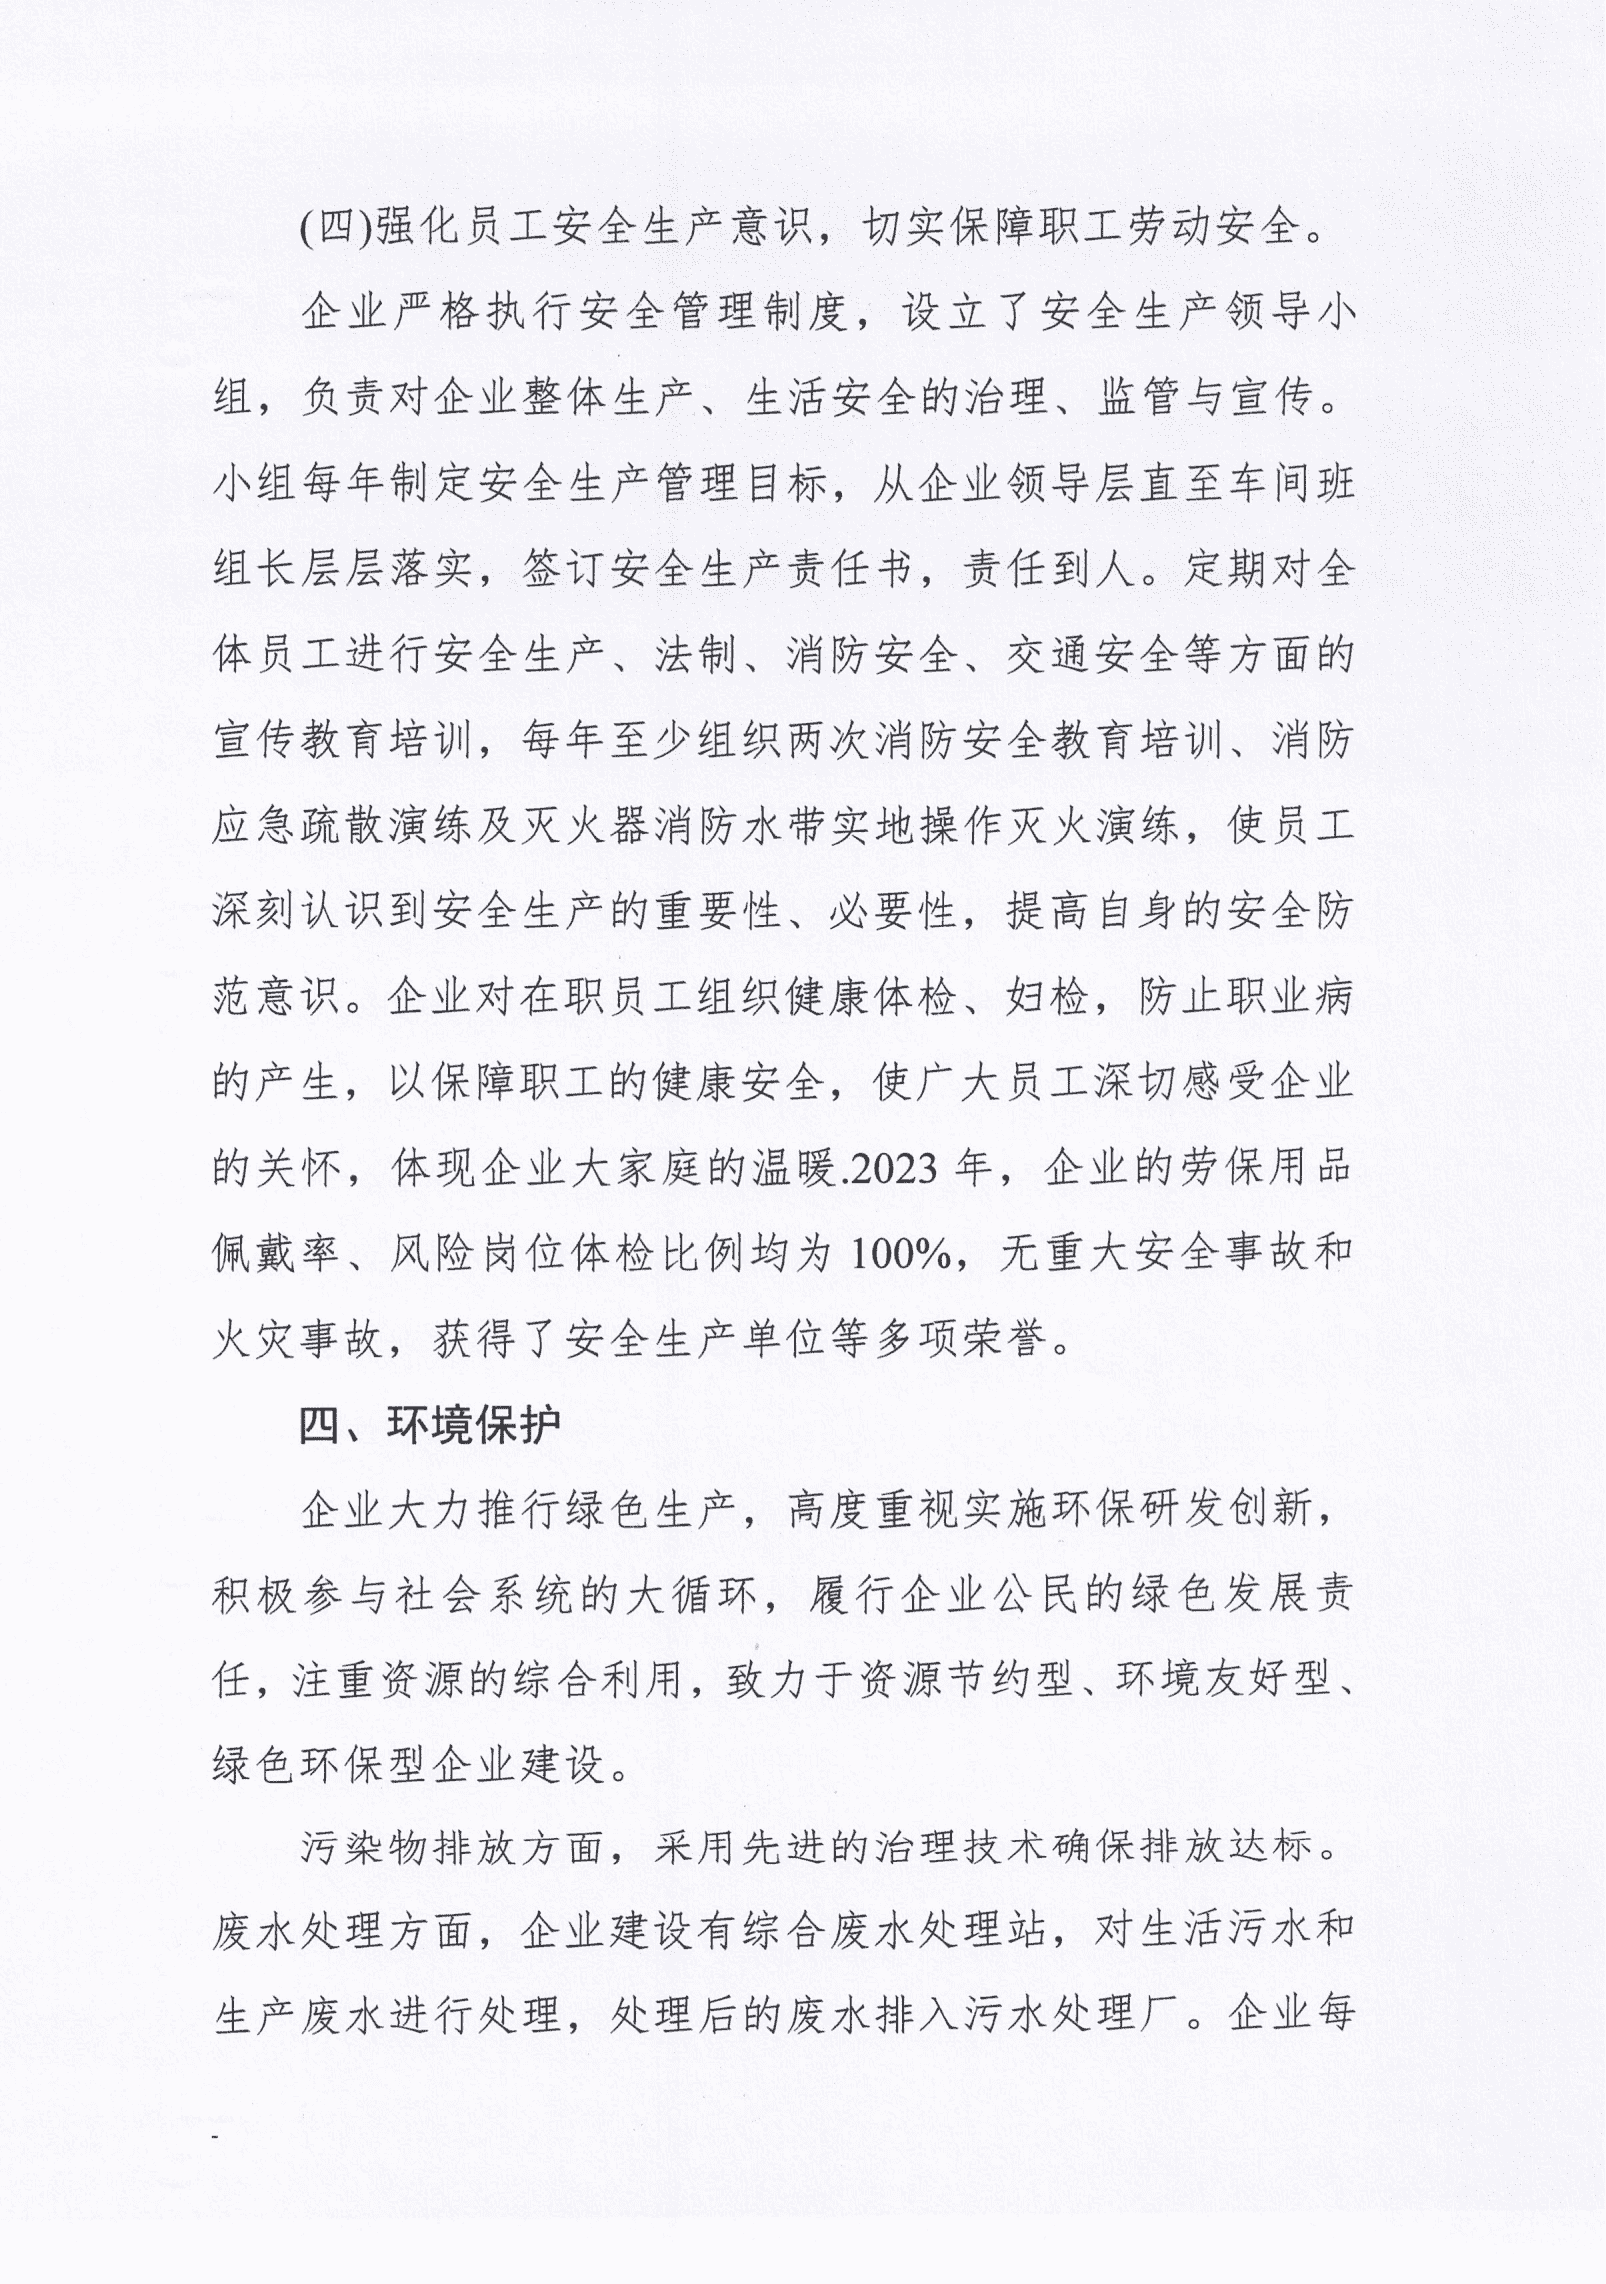 (四)强化员工安全生产意识，切实保障职工劳动安全。
企业严格执行安全管理制度，设立了安全生产领导小
组，负责对企业整体生产、生活安全的治理、监管与宣传。
小组每年制定安全生产管理目标，从企业领导层直至车间班
组长层层落实，签订安全生产责任书，责任到人。定期对全
体员工进行安全生产、法制、消防安全、交通安全等方面的
宣传教育培训，每年至少组织两次消防安全教育培训、消防
应急疏散演练及灭火器消防水带实地操作灭火演练，使员工
深刻认识到安全生产的重要性、必要性，提高自身的安全防
范意识。企业对在职员工组织健康体检、妇检，防止职业病
的产生，以保障职工的健康安全，使广大员工深切感受企业
的关怀，体现企业大家庭的温暖.2023 年，企业的劳保用品
佩戴率、风险岗位体检比例均为 100%，无重大安全事故和
火灾事故，获得了安全生产单位等多项荣誉。
四、环境保护
企业大力推行绿色生产，高度重视实施环保研发创新，
积极参与社会系统的大循环，履行企业公民的绿色发展责
任，注重资源的综合利用，致力于资源节约型、环境友好型、
绿色环保型企业建设。
污染物排放方面，采用先进的治理技术确保排放达标。
废水处理方面，企业建设有综合废水处理站，对生活污水和
生产废水进行处理，处理后的废水排入污水处理厂。企业每
-